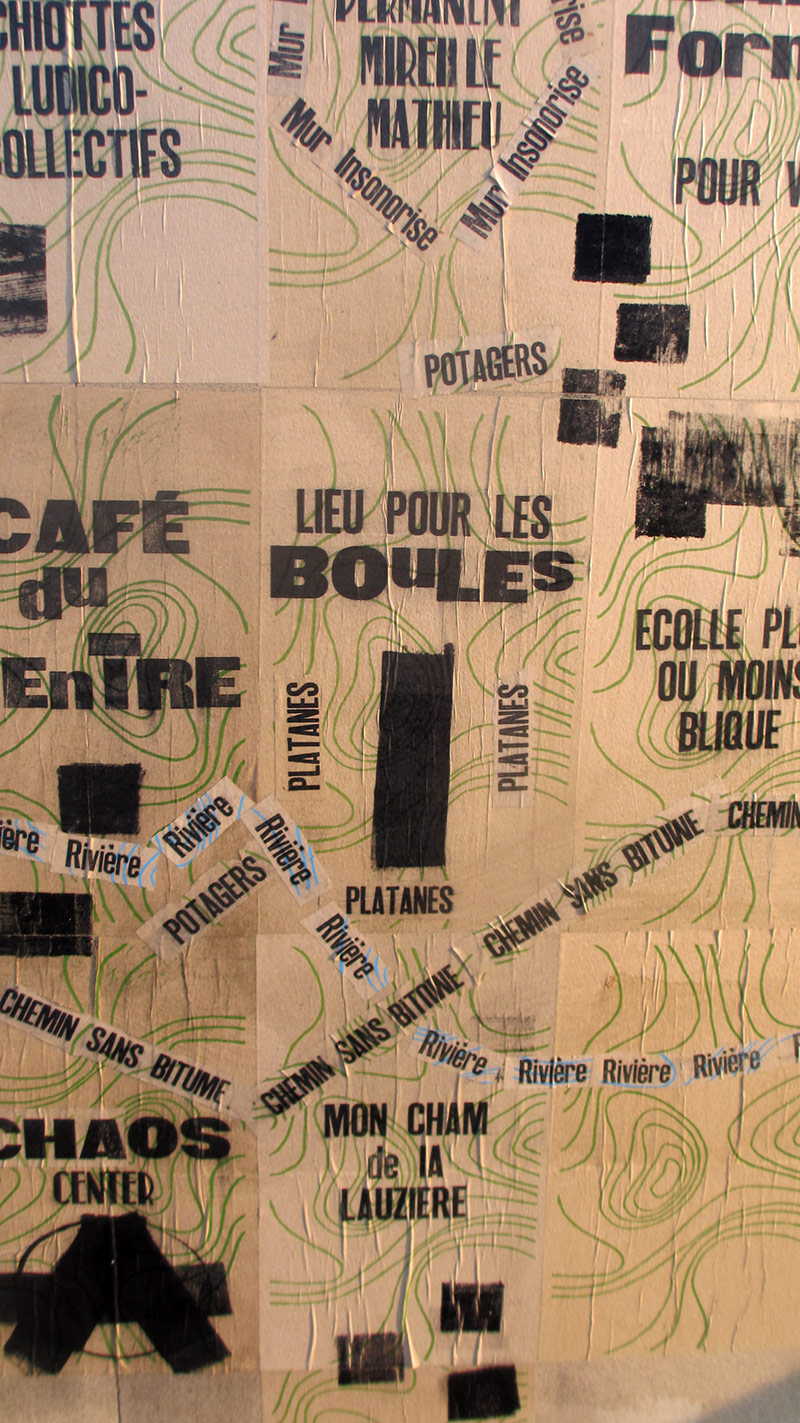 CHIOTTES
LUDICO-
COLLECTIFS
Mur
PERMANENT
MIREILLE
MATHIEU
Mur Insonorise
Mur Insonorise
POUR
POTAGERS
CAFÉ
du
EnTRE
LIEU POUR LES
BOULES
PLATANES
PLATANES
PLATANES
ECOLLE
OU MOINS
BLIQUE
Rivière
Rivière
Rivière
Rivière
POTAGERS
CHEMIN SANS BITUME
CHEMIN
CHEMIN SANS BITUME
CHEMIN SANS BITUME
Rivière
Rivière
Rivière
Rivière
CHAOS
CENTER
MON CHAM
de lA
LAUZIERE